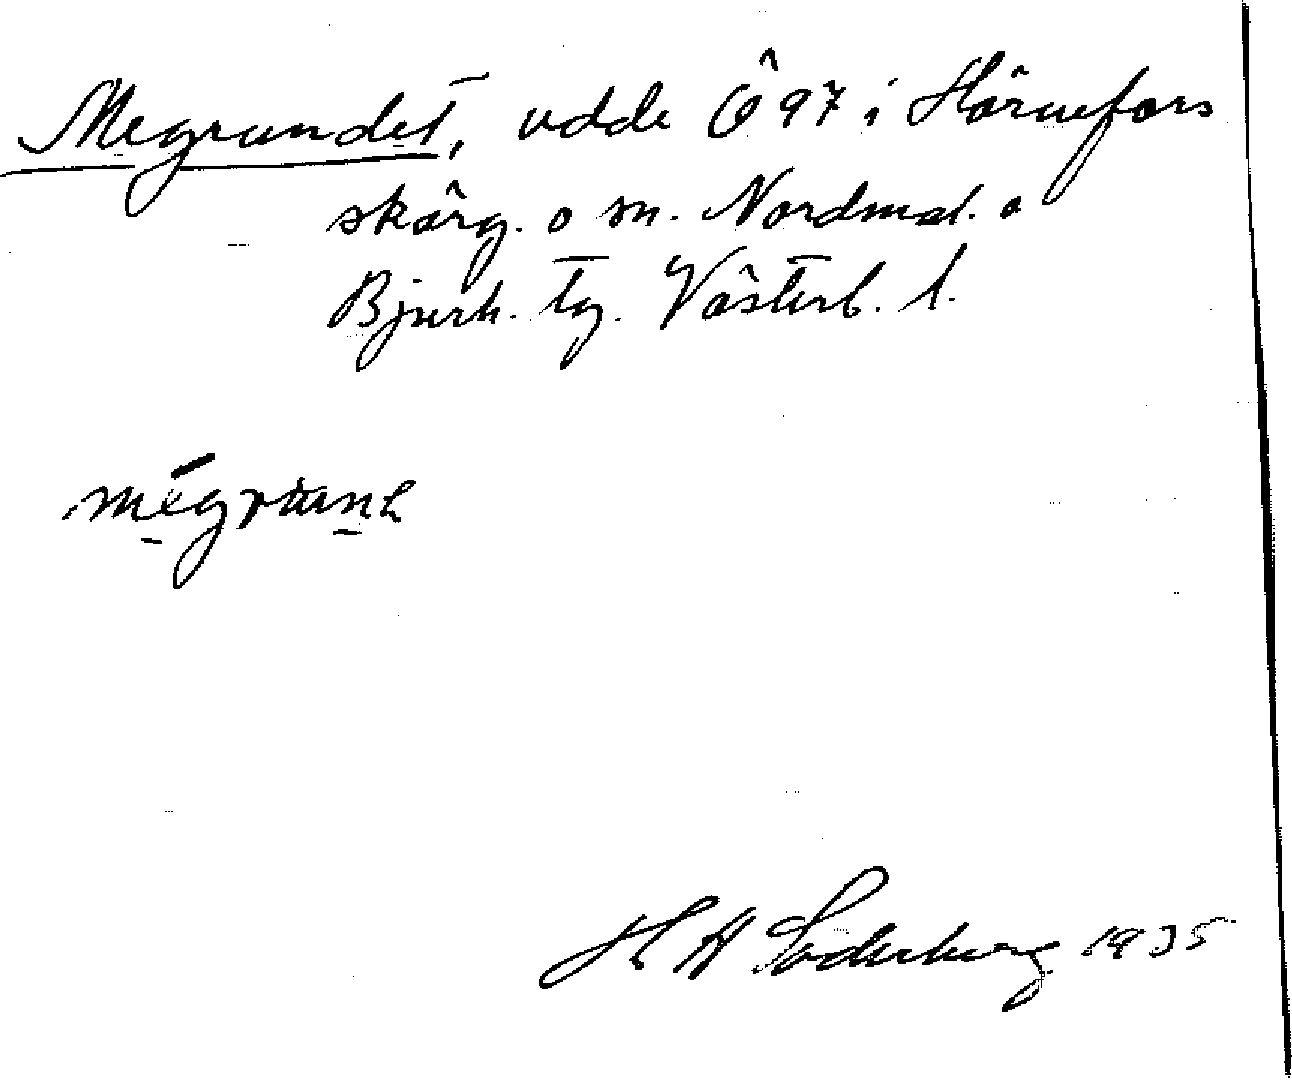 Megrundet, udde Ö 97 i Hörnefors
skärg. o sn. Nordmal. o
Bjurh. tg. Västerb. l.
mēgrʉnₑ
H A Söderberg 1935